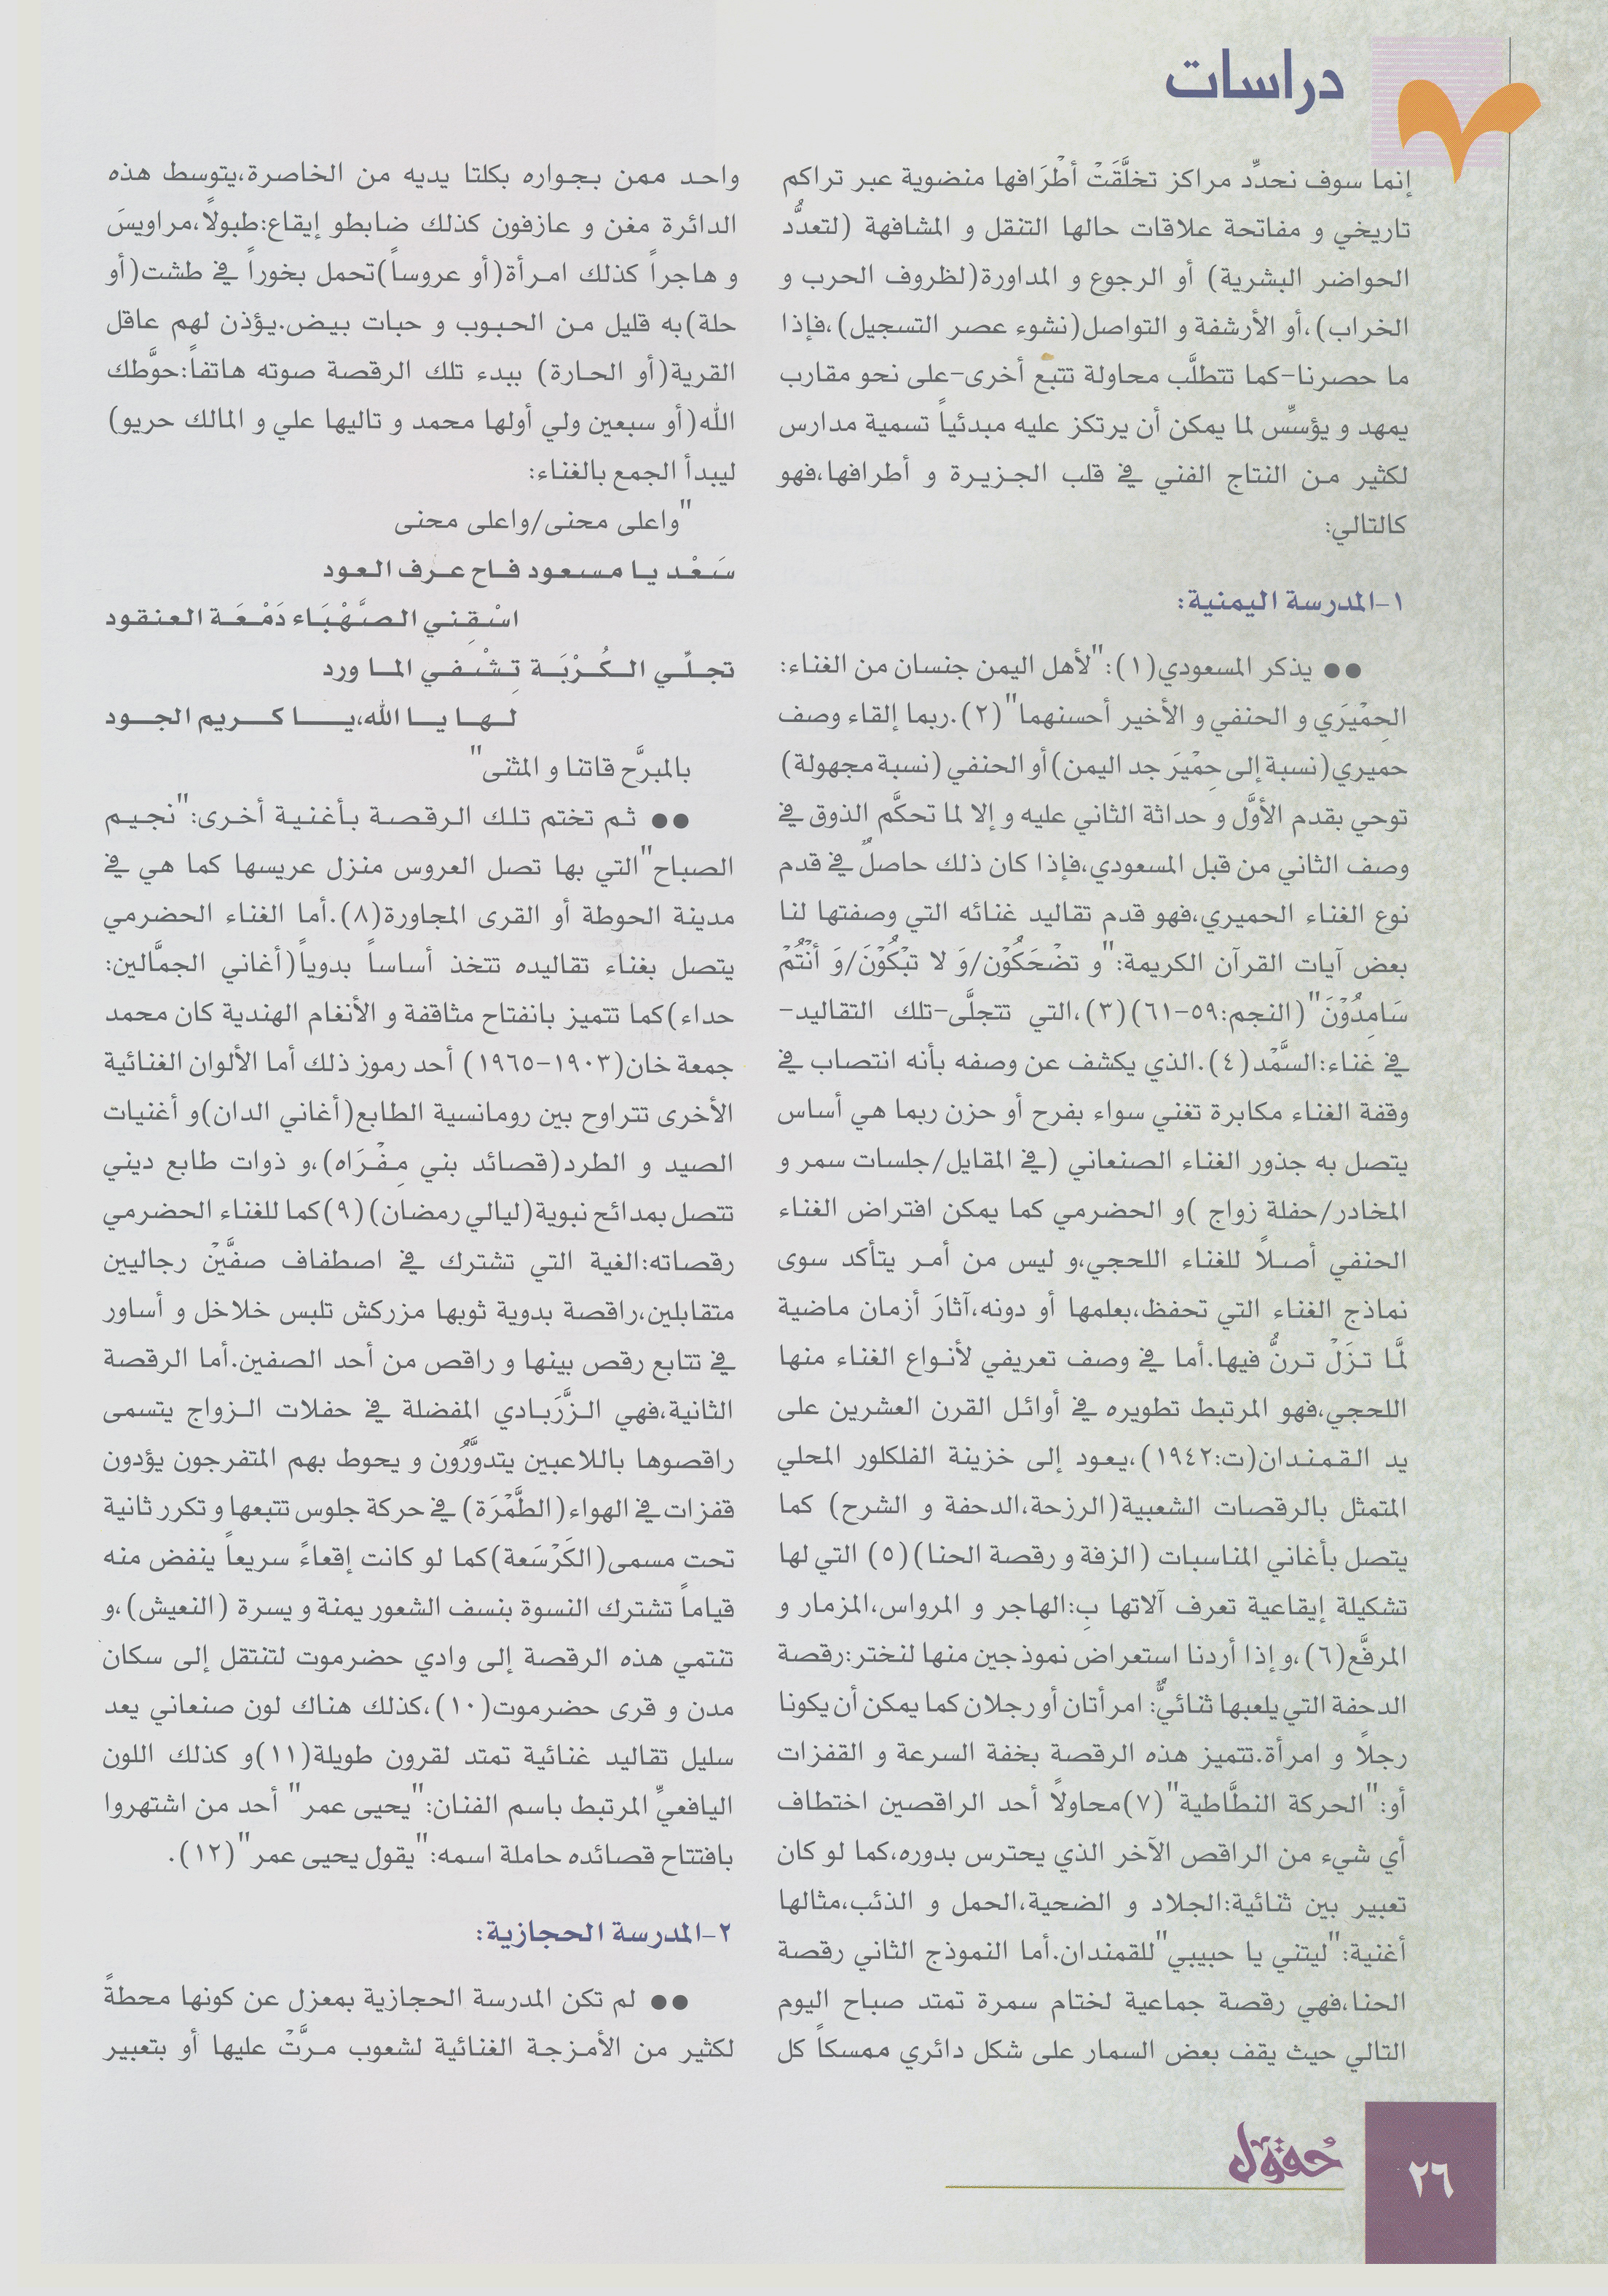 دراسات
إنما سوف نحدِّد مراكز تخلَّقَتْ أطْرَافها منضوية عبر تراكم
تاريخي و مفاتحة علاقات حالها التنقل و المشافهة (لتعدُّد
الحواضر البشرية) أو الرجوع و المداورة(لظروف الحرب و
الخراب)،أو الأرشفة و التواصل(نشوء عصر التسجيل)،فإذا
ما حصرنا-كما تتطلَّب محاولة تتبع أخرى-على نحو مقارب
يمهد و يؤسسِّ لما يمكن أن يرتكز عليه مبدئياً تسمية مدارس
لكثير من النتاج الفني في قلب الجزيرة و أطرافها،فهو
كالتالي:
١-المدرسة اليمنية:
●● يذكر المسعودي(١):"لأهل اليمن جنسان من الغناء:
الحِمْيَرَي و الحنفي و الأخير أحسنهما"(٢).ربما إلقاء وصف
حميري(نسبة إلى حِمْيَرَ جد اليمن)أو الحنفي (نسبة مجهولة)
توحي بقدم الأوَّل و حداثة الثاني عليه و إلا لما تحكَّم الذوق في
وصف الثاني من قبل المسعودي،فإذا كان ذلك حاصلٌ في قدم
نوع الغناء الحميري،فهو قدم تقاليد غنائه التي وصفتها لنا
بعض آيات القرآن الكريمة:"و تضْحَكُوْن/وَ لا تبْكُوْنَ/وَ أنْتُمْ
سَامِدُوْنَ"(النجم:٥٩-٦١)(٣)،التي تتجلَّى-تلك التقاليد-
في غناء:السَّمْد(٤).الذي يكشف عن وصفه بأنه انتصاب في
وقفة الغناء مكابرة تغني سواء بفرح أو حزن ربما هي أساس
يتصل به جذور الغناء الصنعاني (في المقايل/جلسات سمر و
المخادر/حفلة زواج )و الحضرمي كما يمكن افتراض الغناء
الحنفي أصلاً للغناء اللحجي،و ليس من أمر يتأكد سوى
نماذج الغناء التي تحفظ،بعلمها أو دونه،آثارَ أزمان ماضية
لمَّا تزَلْ ترنُّ فيها.أما في وصف تعريفي لأنواع الغناء منها
اللحجي،فهو المرتبط تطويره في أوائل القرن العشرين على
يد القمندان(ت:١٩٤٢)،يعود إلى خزينة الفلكلور المحلي
المتمثل بالرقصات الشعبية(الرزحة،الدحفة و الشرح) كما
يتصل بأغاني المناسبات (الزفة و رقصة الحنا)(٥) التي لها
تشكيلة إيقاعية تعرف آلاتها بِ:الهاجر و المرواس،المزمار و
المرفَّع(٦)،و إذا أردنا استعراض نموذجين منها لنختر:رقصة
الدحفة التي يلعبها ثنائيٌّ: امرأتان أو رجلان كما يمكن أن يكونا
رجلاً و امرأة.تتميز هذه الرقصة بخفة السرعة و القفزات
أو:"الحركة النطَّاطية"(٧)محاولاً أحد الراقصين اختطاف
أي شيء من الراقص الآخر الذي يحترس بدوره،كما لو كان
تعبير بين ثنائية:الجلاد و الضحية،الحمل و الذئب،مثالها
أغنية:"ليتني يا حبيبي"للقمندان.أما النموذج الثاني رقصة
الحنا،فهي رقصة جماعية لختام سمرة تمتد صباح اليوم
التالي حيث يقف بعض السمار على شكل دائري ممسكاً كل
واحد ممن بجواره بكلتا يديه من الخاصرة،يتوسط هذه
الدائرة مغن و عازفون كذلك ضابطو إيقاع:طبولاً،مراويسَ
و هاجراً كذلك امرأة(أو عروساً)تحمل بخوراً في طشت(أو
حلة)به قليل من الحبوب و حبات بيض.يؤذن لهم عاقل
القرية(أو الحارة) ببدء تلك الرقصة صوته هاتفاً:حوَّطك
الله(أو سبعين ولي أولها محمد و تاليها علي و المالك حريو)
ليبدأ الجمع بالغناء:
"واعلى محنى/واعلى محنى
سَعْد يا مسعود فاح عرف العود
اسْقِني الصَّهْبَاء دَمْعَة العنقود
تجلِّي الكُرْبَة تِشْفي الما ورد
لها يا الله،يا كريم الجود
بالمبرَّح قاتنا و المثنى"
●● ثم تختم تلك الرقصة بأغنية أخرى:"نجيم
الصباح"التي بها تصل العروس منزل عريسها كما هي في
مدينة الحوطة أو القرى المجاورة(٨).أما الغناء الحضرمي
يتصل بغناء تقاليده تتخذ أساساً بدوياً(أغاني الجمَّالين:
حداء)كما تتميز بانفتاح مثاقفة و الأنغام الهندية كان محمد
جمعة خان(١٩٠٣-١٩٦٥) أحد رموز ذلك أما الألوان الغنائية
الأخرى تتراوح بين رومانسية الطابع(أغاني الدان)و أغنيات
الصيد و الطرد(قصائد بني مِفْرَاه)،و ذوات طابع ديني
تتصل بمدائح نبوية(ليالي رمضان)(٩)كما للغناء الحضرمي
رقصاته:الغية التي تشترك في اصطفاف صفَّيْن رجاليين
متقابلين،راقصة بدوية ثوبها مزركش تلبس خلاخل و أساور
في تتابع رقص بينها و راقص من أحد الصفين.أما الرقصة
الثانية،فهي الزَّرَبادي المفضلة في حفلات الزواج يتسمى
راقصوها باللاعبين يتدوَّرُون و يحوط بهم المتفرجون يؤدون
قفزات في الهواء(الطَّمْرَة) في حركة جلوس تتبعها و تكرر ثانية
تحت مسمى(الكَرْسَعة)كما لو كانت إقعاءً سريعاً ينفض منه
قياماً تشترك النسوة بنسف الشعور يمنة و يسرة (النعيش)،و
تنتمي هذه الرقصة إلى وادي حضرموت لتنتقل إلى سكان
مدن و قرى حضرموت(١٠)،كذلك هناك لون صنعاني يعد
سليل تقاليد غنائية تمتد لقرون طويلة(١١)و كذلك اللون
اليافعيِّ المرتبط باسم الفنان:"يحيى عمر" أحد من اشتهروا
بافتتاح قصائده حاملة اسمه:"يقول يحيى عمر"(١٢).
٢-المدرسة الحجازية:
●● لم تكن المدرسة الحجازية بمعزل عن كونها محطةً
لكثير من الأمزجة الغنائية لشعوب مرَّتْ عليها أو بتعبير
حُقول
٢٦